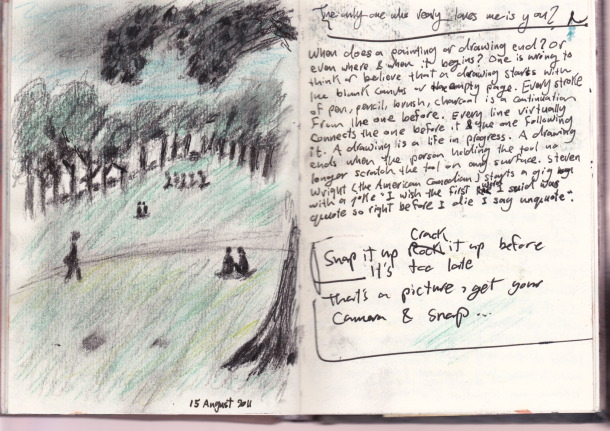 The only one who really loves me is you?
When does a painting or drawing end? Or
even where & when it begins? One is wrong to
think or believe that a drawing starts with
the blank canvas or the empty page. Every stroke
of pen, pencil, brush, charcoal is a continuation
from the one before. Every line virtually
connects the one before it & the one following
it. A drawing is a life in progress. A drawing
ends when the person holding the tool no
longer scratch the tool on any surface. Steven
Wright (the American Comedian) starts a gig
with a joke "I wish the first I said was
quote so right before I die I say unquote".
Crack
Snap it up Rock it up before
It's too late
That's a picture, get your
Camera & snap...
15 August 2011